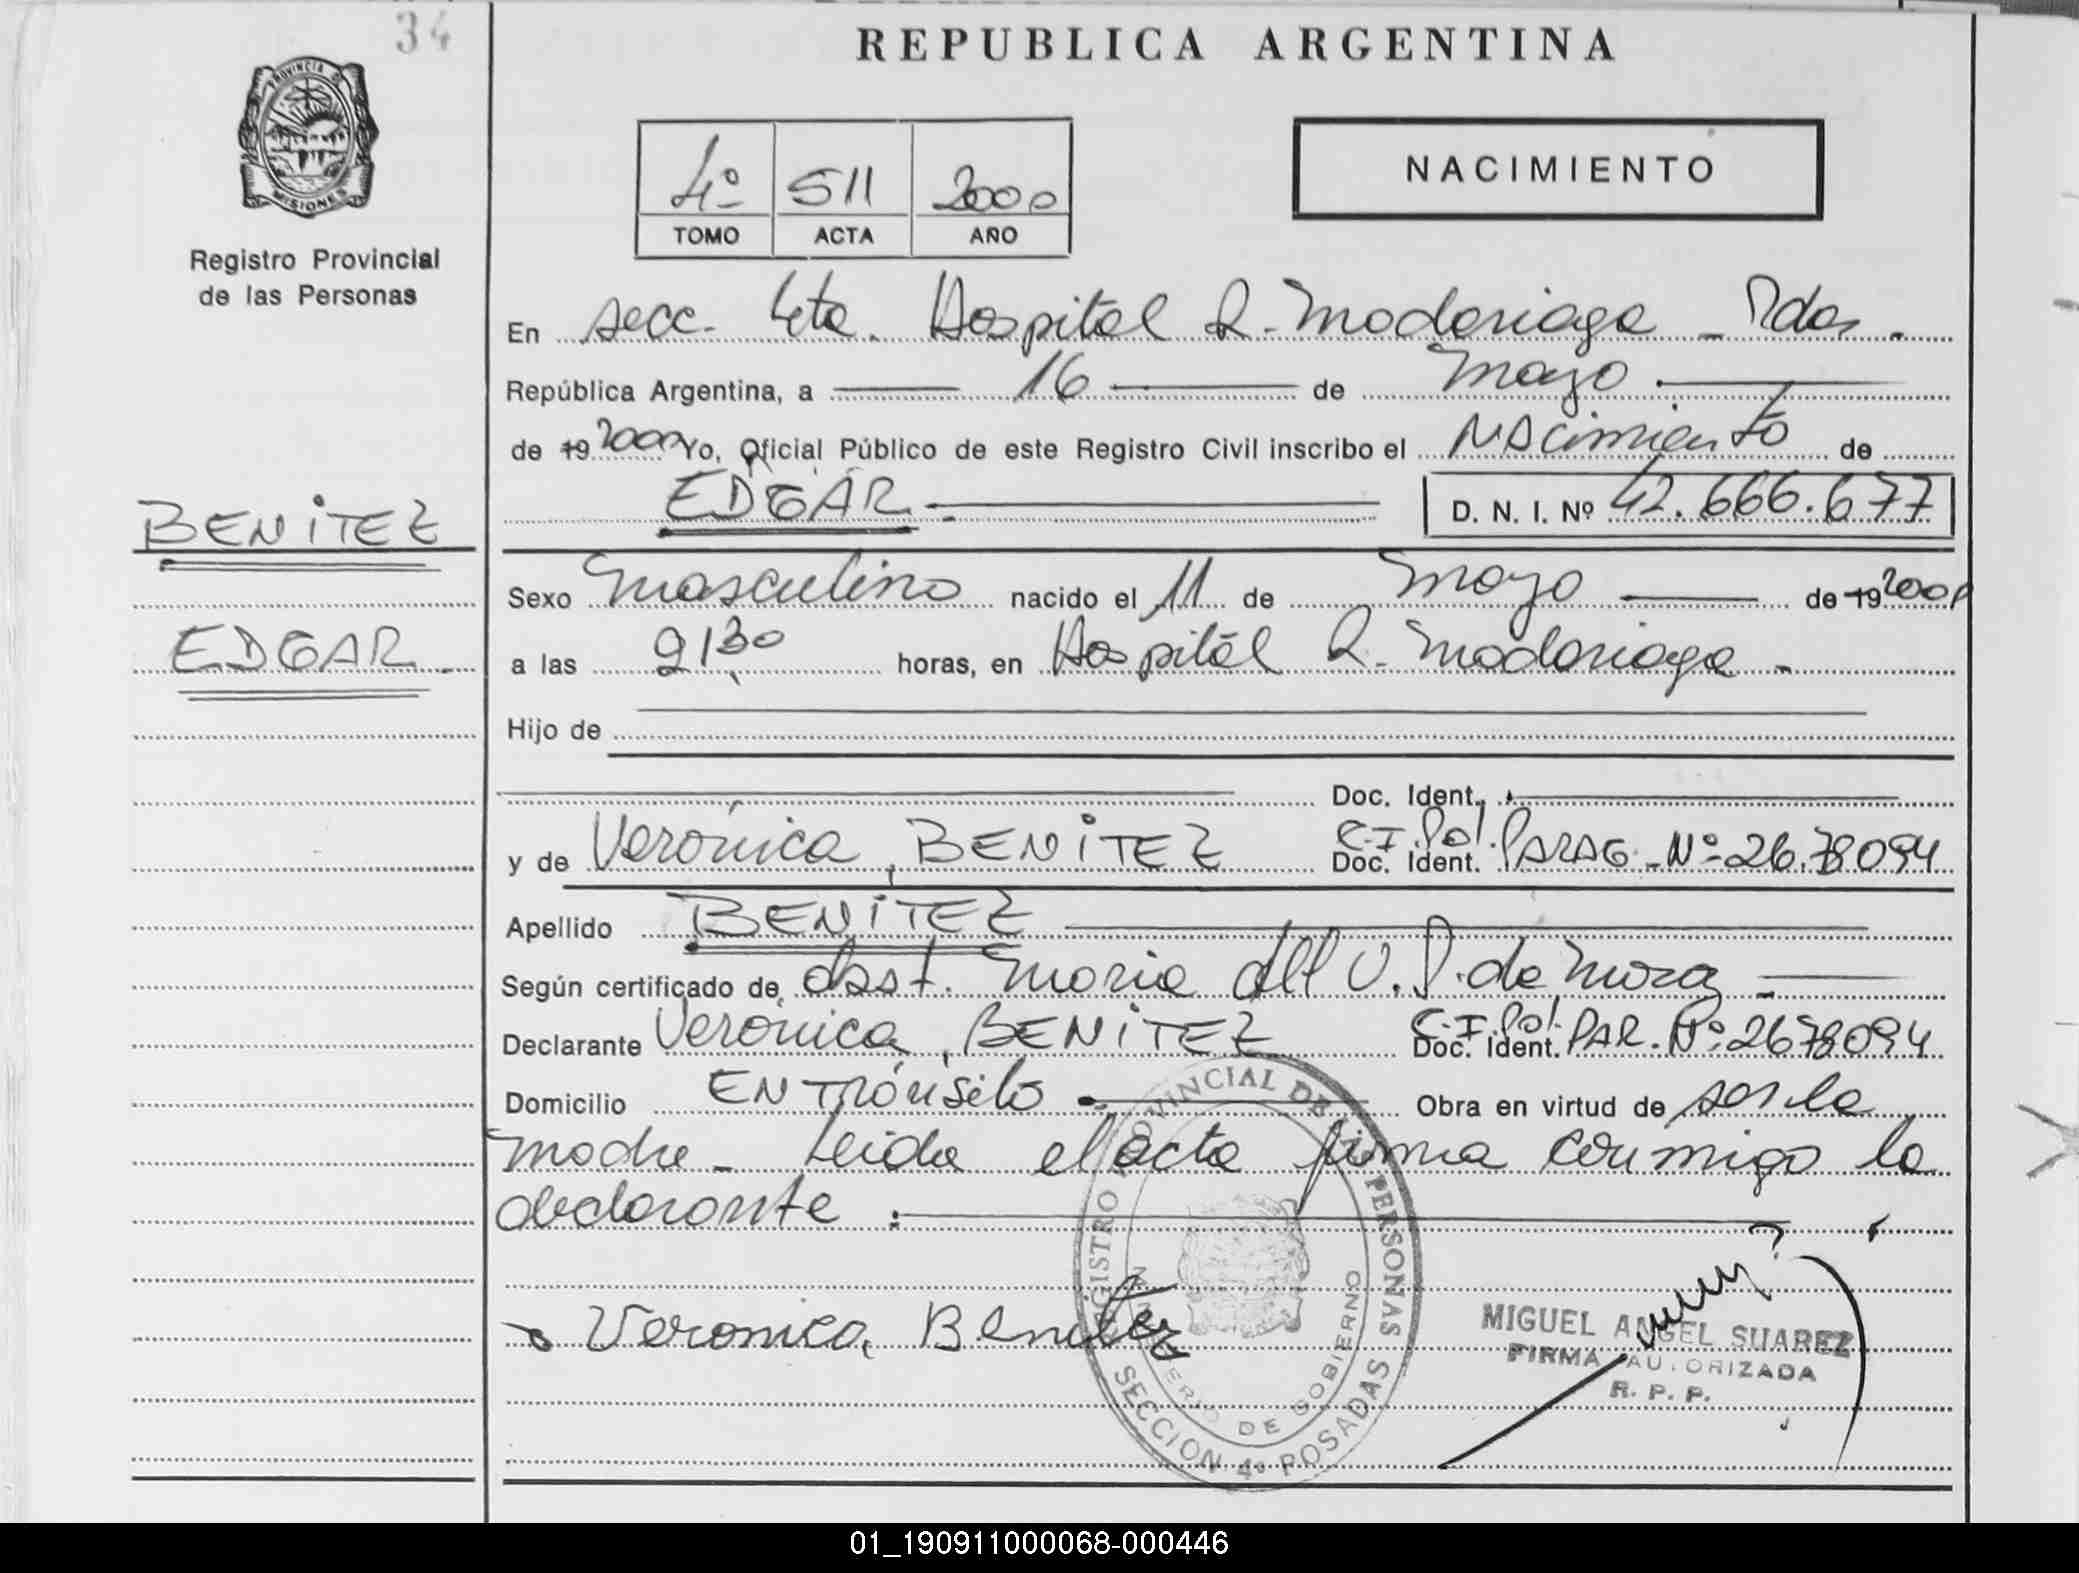 34
REPUBLICA ARGENTINA
PROVINCIA DE MISIONES
Registro Provincial
de las Personas
4º 511 2000
TOMO ACTA AÑO
NACIMIENTO
En secc. 4ta. Hospital R. Madariaga - Pdas.
República Argentina, a 16 de Mayo
de 19 2000 Yo, Oficial Público de este Registro Civil inscribo el Nacimiento de
EDGAR D. N. I. Nº 42.666.677
BENiTEZ
EDGAR
Sexo Masculino nacido el 11 de Mayo de 19 2000
a las 9,30 horas, en Hospital R. Madariaga -
Hijo de
Doc. Ident.
y de Verónica, BENiTEZ Doc. Ident. C.I. Pol. PARAG. Nº 26.78094
Apellido BENiTEZ
Según certificado de obst. Maria del V. P. de Mora
Declarante Verónica, BENiTEZ Doc. Ident. C.I. Pol. PAR. Nº 2678094
Domicilio EN Tránsito Obra en virtud de ser la
madre - Leida el acta firma conmigo la
declarante
Veronica, Benitez
REGISTRO PROVINCIAL DE LAS PERSONAS
MINISTERIO DE GOBIERNO
SECCION 4º POSADAS
MIGUEL ANGEL SUAREZ
FIRMA AUTORIZADA
R. P. P.
01_190911000068-000446